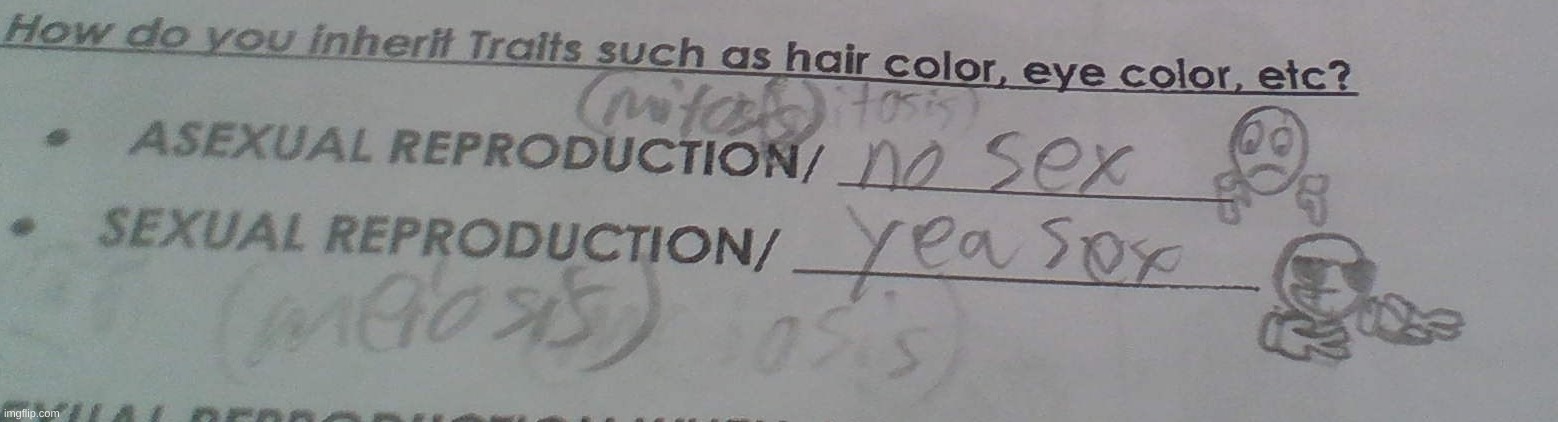 How do you inherit Traits such as hair color, eye color, etc?
(mitosis) itosis)
• ASEXUAL REPRODUCTION/ no sex
• SEXUAL REPRODUCTION/ yea sex
(meiosis) osis)
imgflip.com